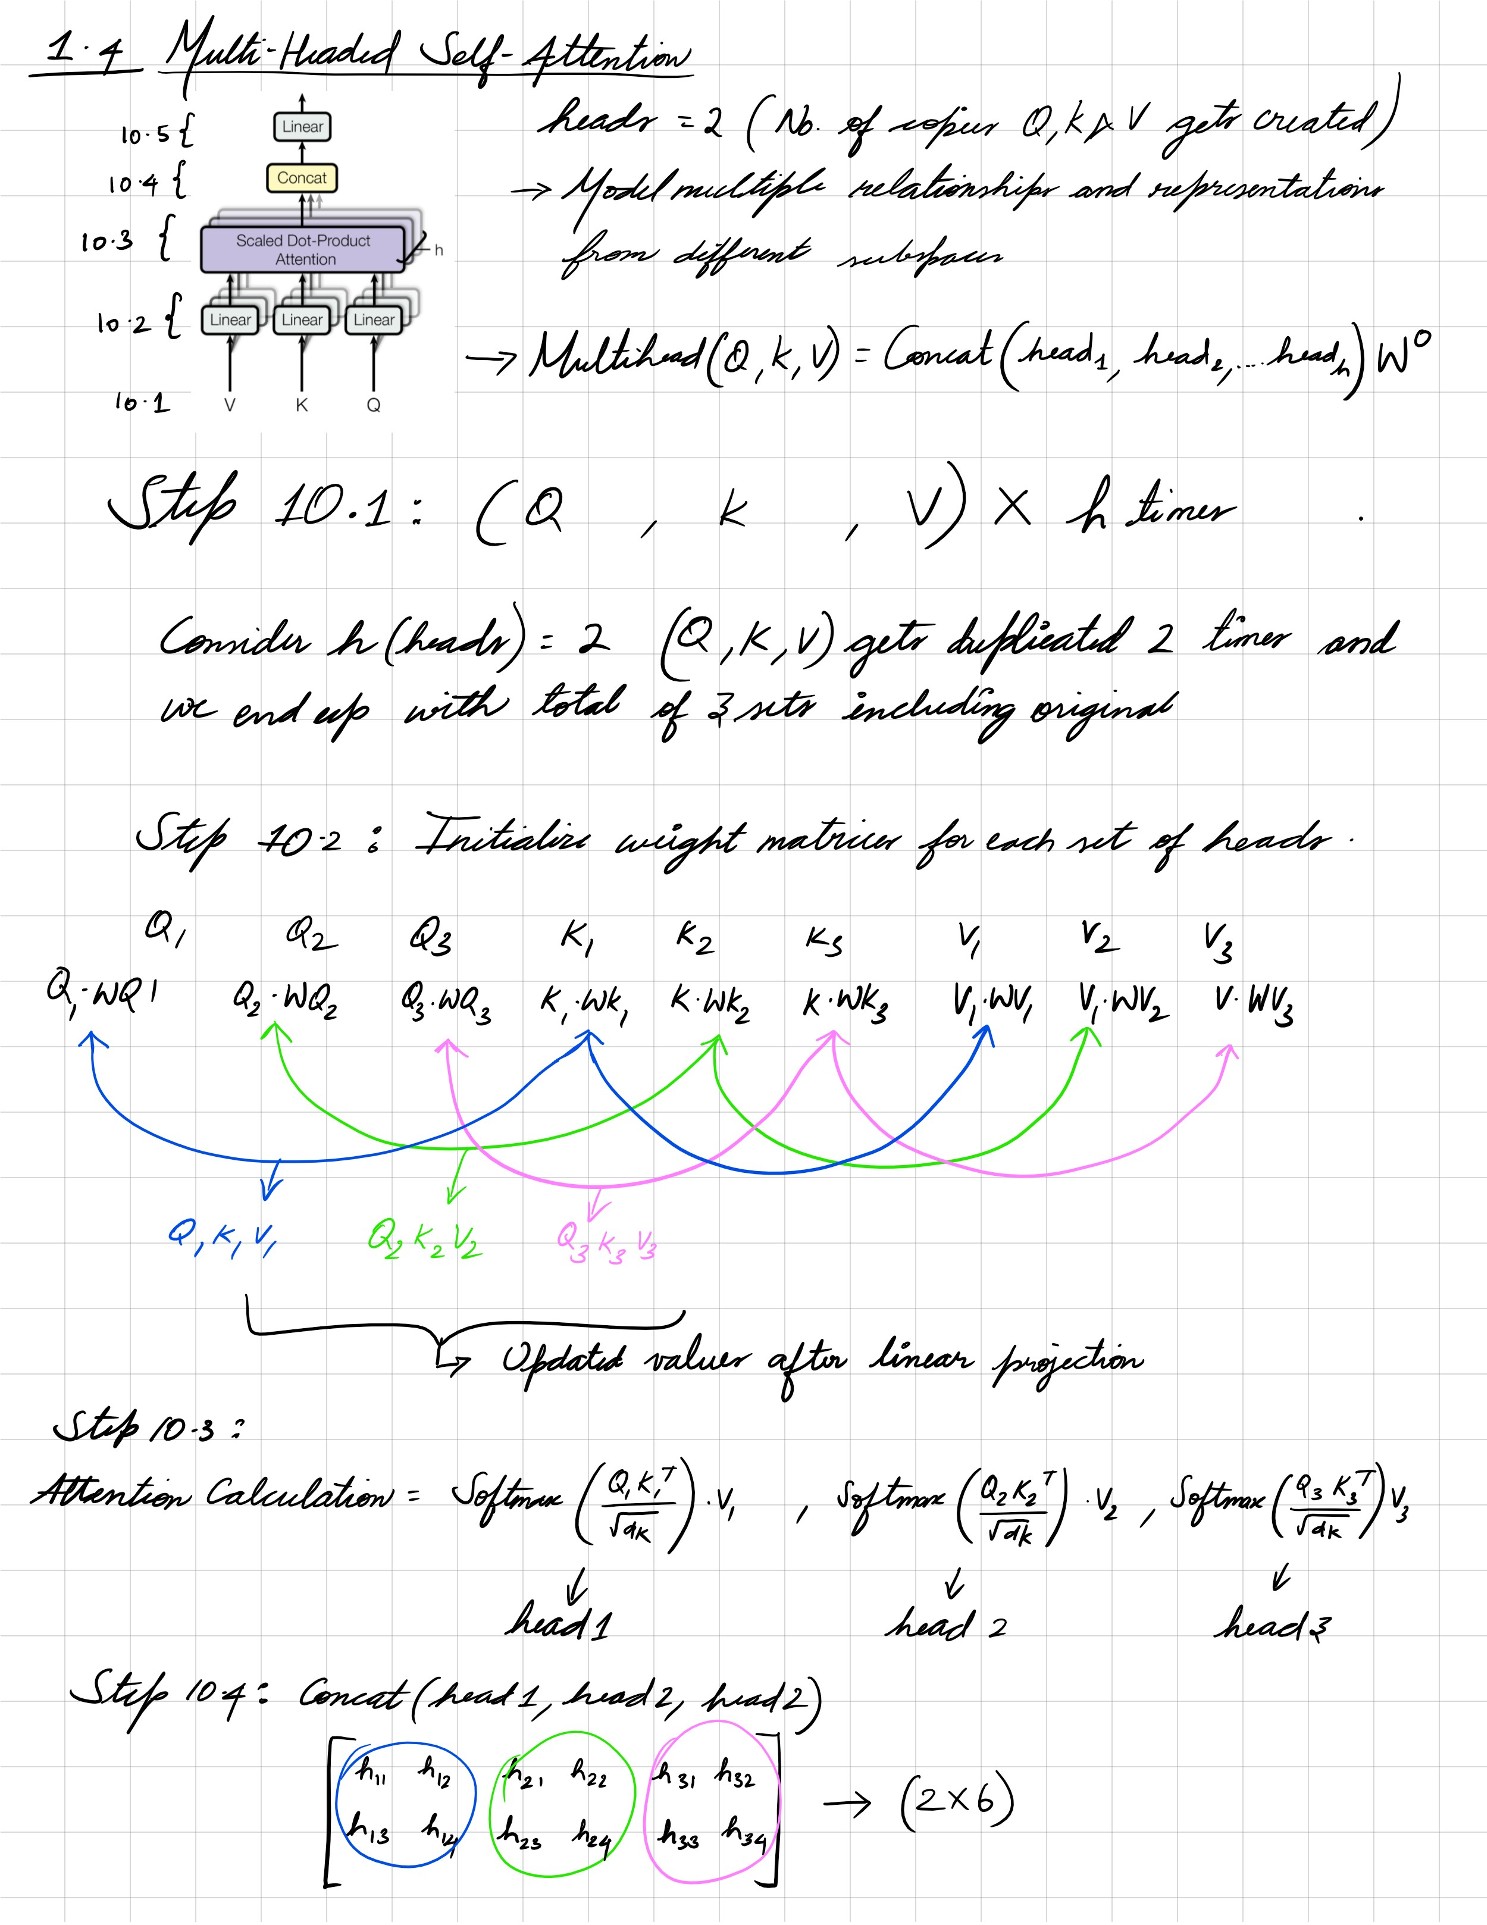 1.4 Multi-Headed Self-Attention
10.5{
Linear
10.4{
Concat
10.3{
Scaled Dot-Product
Attention
h
10.2{
Linear Linear Linear
10.1
V K Q
heads = 2 (No. of copies Q, K & V gets created)
→ Model multiple relationships and representations
from different subspaces
→ Multihead(Q, K, V) = Concat(head₁, head₂, .... headₕ) W⁰
Step 10.1: (Q , K , V) X h times .
Consider h (heads) = 2 (Q, K, V) gets duplicated 2 times and
we end up with total of 3 sets including original
Step 10.2: Initialize weight matrices for each set of heads.
Q₁ Q₂ Q₃ K₁ K₂ K₃ V₁ V₂ V₃
Q₁·WQ1 Q₂·WQ₂ Q₃·WQ₃ K₁·Wk₁ K·Wk₂ K·Wk₃ V₁·WV₁ V₁·WV₂ V·WV₃
Q₁ K₁ V₁ Q₂ K₂ V₂ Q₃ K₃ V₃
↳ Updated values after linear projection
Step 10.3:
Attention Calculation = Softmax (Q₁K₁ᵀ/√dk)·V₁ , Softmax (Q₂K₂ᵀ/√dk)·V₂ , Softmax (Q₃K₃ᵀ/√dk)V₃
↓ ↓ ↓
head 1 head 2 head 3
Step 10.4: Concat (head 1, head 2, head 2)
[h₁₁ h₁₂ h₂₁ h₂₂ h₃₁ h₃₂
h₁₃ h₁₄ h₂₃ h₂₄ h₃₃ h₃₄] → (2X6)